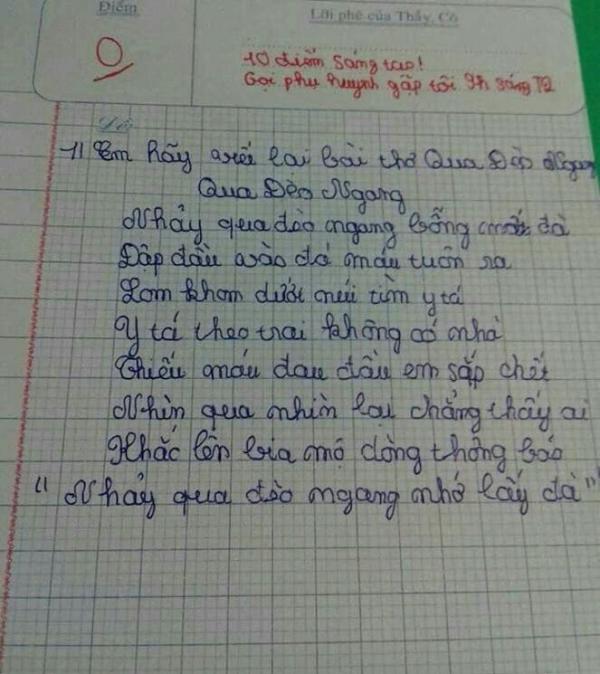 Điểm
Lời phê của Thầy, Cô
0
10 điểm sáng tạo!
Gọi phụ huynh gặp tôi 9h sáng T2
1) Em hãy viết lại bài thơ Qua Đèo Ngang
Qua Đèo Ngang
Nhảy qua đèo ngang bỗng mất đà
Đập đầu vào đá máu tuôn ra
Lom khom dưới núi tìm y tá
Y tá theo trai không có nhà
Thiếu máu đau đầu em sắp chết
Nhìn qua nhìn lại chẳng thấy ai
Khắc lên bia mộ dòng thông báo
"Nhảy qua đèo ngang nhớ lấy đà"